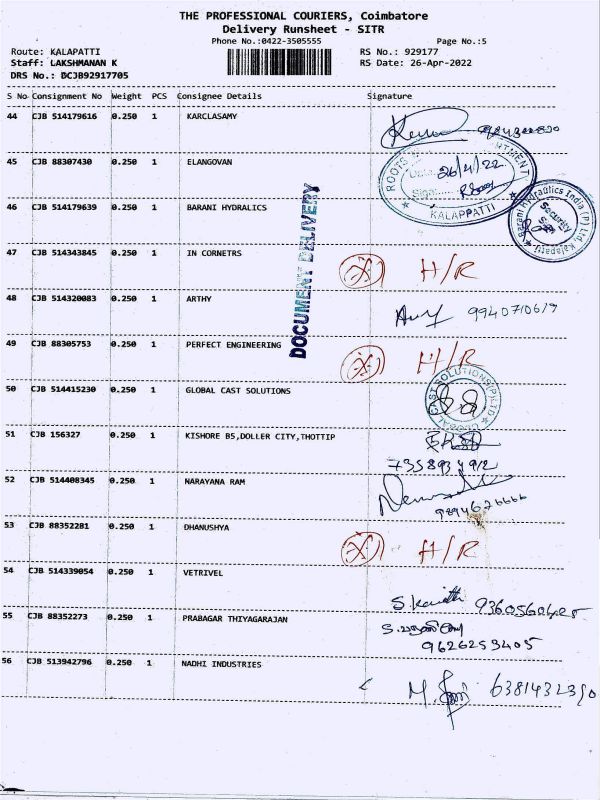 THE PROFESSIONAL COURIERS, Coimbatore
Delivery Runsheet - SITR
Phone No.:0422-3505555 Page No.:5
Route: KALAPATTI RS No.: 929177
Staff: LAKSHMANAN K RS Date: 26-Apr-2022
DRS No.: BCJB92917705
S No Consignment No Weight PCS Consignee Details Signature
44 CJB 514179616 0.250 1 KARCLASAMY
45 CJB 88307430 0.250 1 ELANGOVAN
ROOTS
Date: 26/4/22
Sign:
KALAPPATTI
46 CJB 514179639 0.250 1 BARANI HYDRALICS
Barani Hydraulics India (P) Ltd. Kalapatti
Security
DOCUMENT DELIVERY
47 CJB 514343845 0.250 1 IN CORNETRS
H/R
48 CJB 514320083 0.250 1 ARTHY
9940710619
49 CJB 88305753 0.250 1 PERFECT ENGINEERING
H/R
50 CJB 514415230 0.250 1 GLOBAL CAST SOLUTIONS
GLOBAL CAST SOLUTIONS(P)LTD
51 CJB 156327 0.250 1 KISHORE B5,DOLLER CITY,THOTTIP
7358934912
52 CJB 514408345 0.250 1 NARAYANA RAM
9894626666
53 CJB 88352281 0.250 1 DHANUSHYA
H/R
54 CJB 514339054 0.250 1 VETRIVEL
55 CJB 88352273 0.250 1 PRABAGAR THIYAGARAJAN
9626253405
56 CJB 513942796 0.250 1 NADHI INDUSTRIES
6381432390